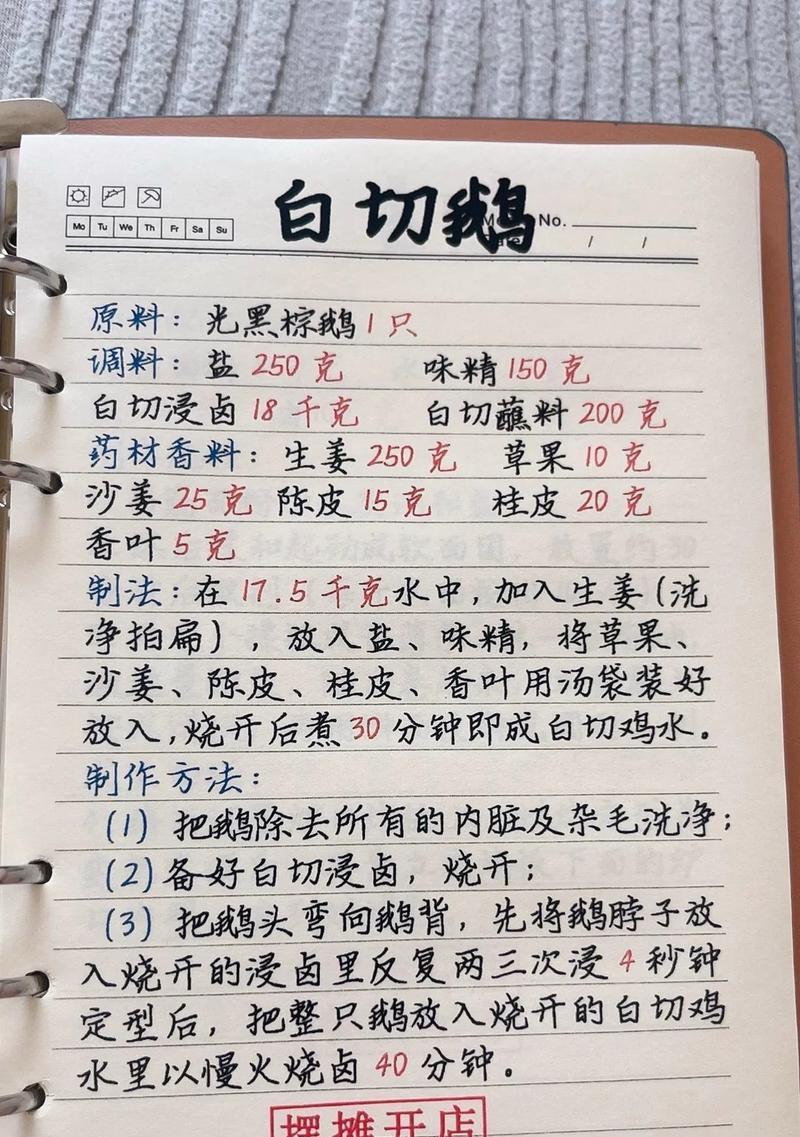 白切鹅
Mo Tu We Th Fr Sa Su
No.
/ /
原料：光黑棕鹅1只
调料：盐250克 味精150克
白切浸卤18千克 白切蘸料200克
药材香料：生姜250克 草果10克
沙姜25克 陈皮15克 桂皮20克
香叶5克
制法：在17.5千克水中，加入生姜（洗
净拍扁），放入盐、味精，将草果、
沙姜、陈皮、桂皮、香叶用汤袋装好
放入，烧开后煮30分钟即成白切鸡水。
制作方法：
（1）把鹅除去所有的内脏及杂毛洗净；
（2）备好白切浸卤，烧开；
（3）把鹅头弯向鹅背，先将鹅脖子放
入烧开的浸卤里反复两三次浸4秒钟
定型后，把整只鹅放入烧开的白切鸡
水里以慢火烧卤40分钟。
摆摊开店